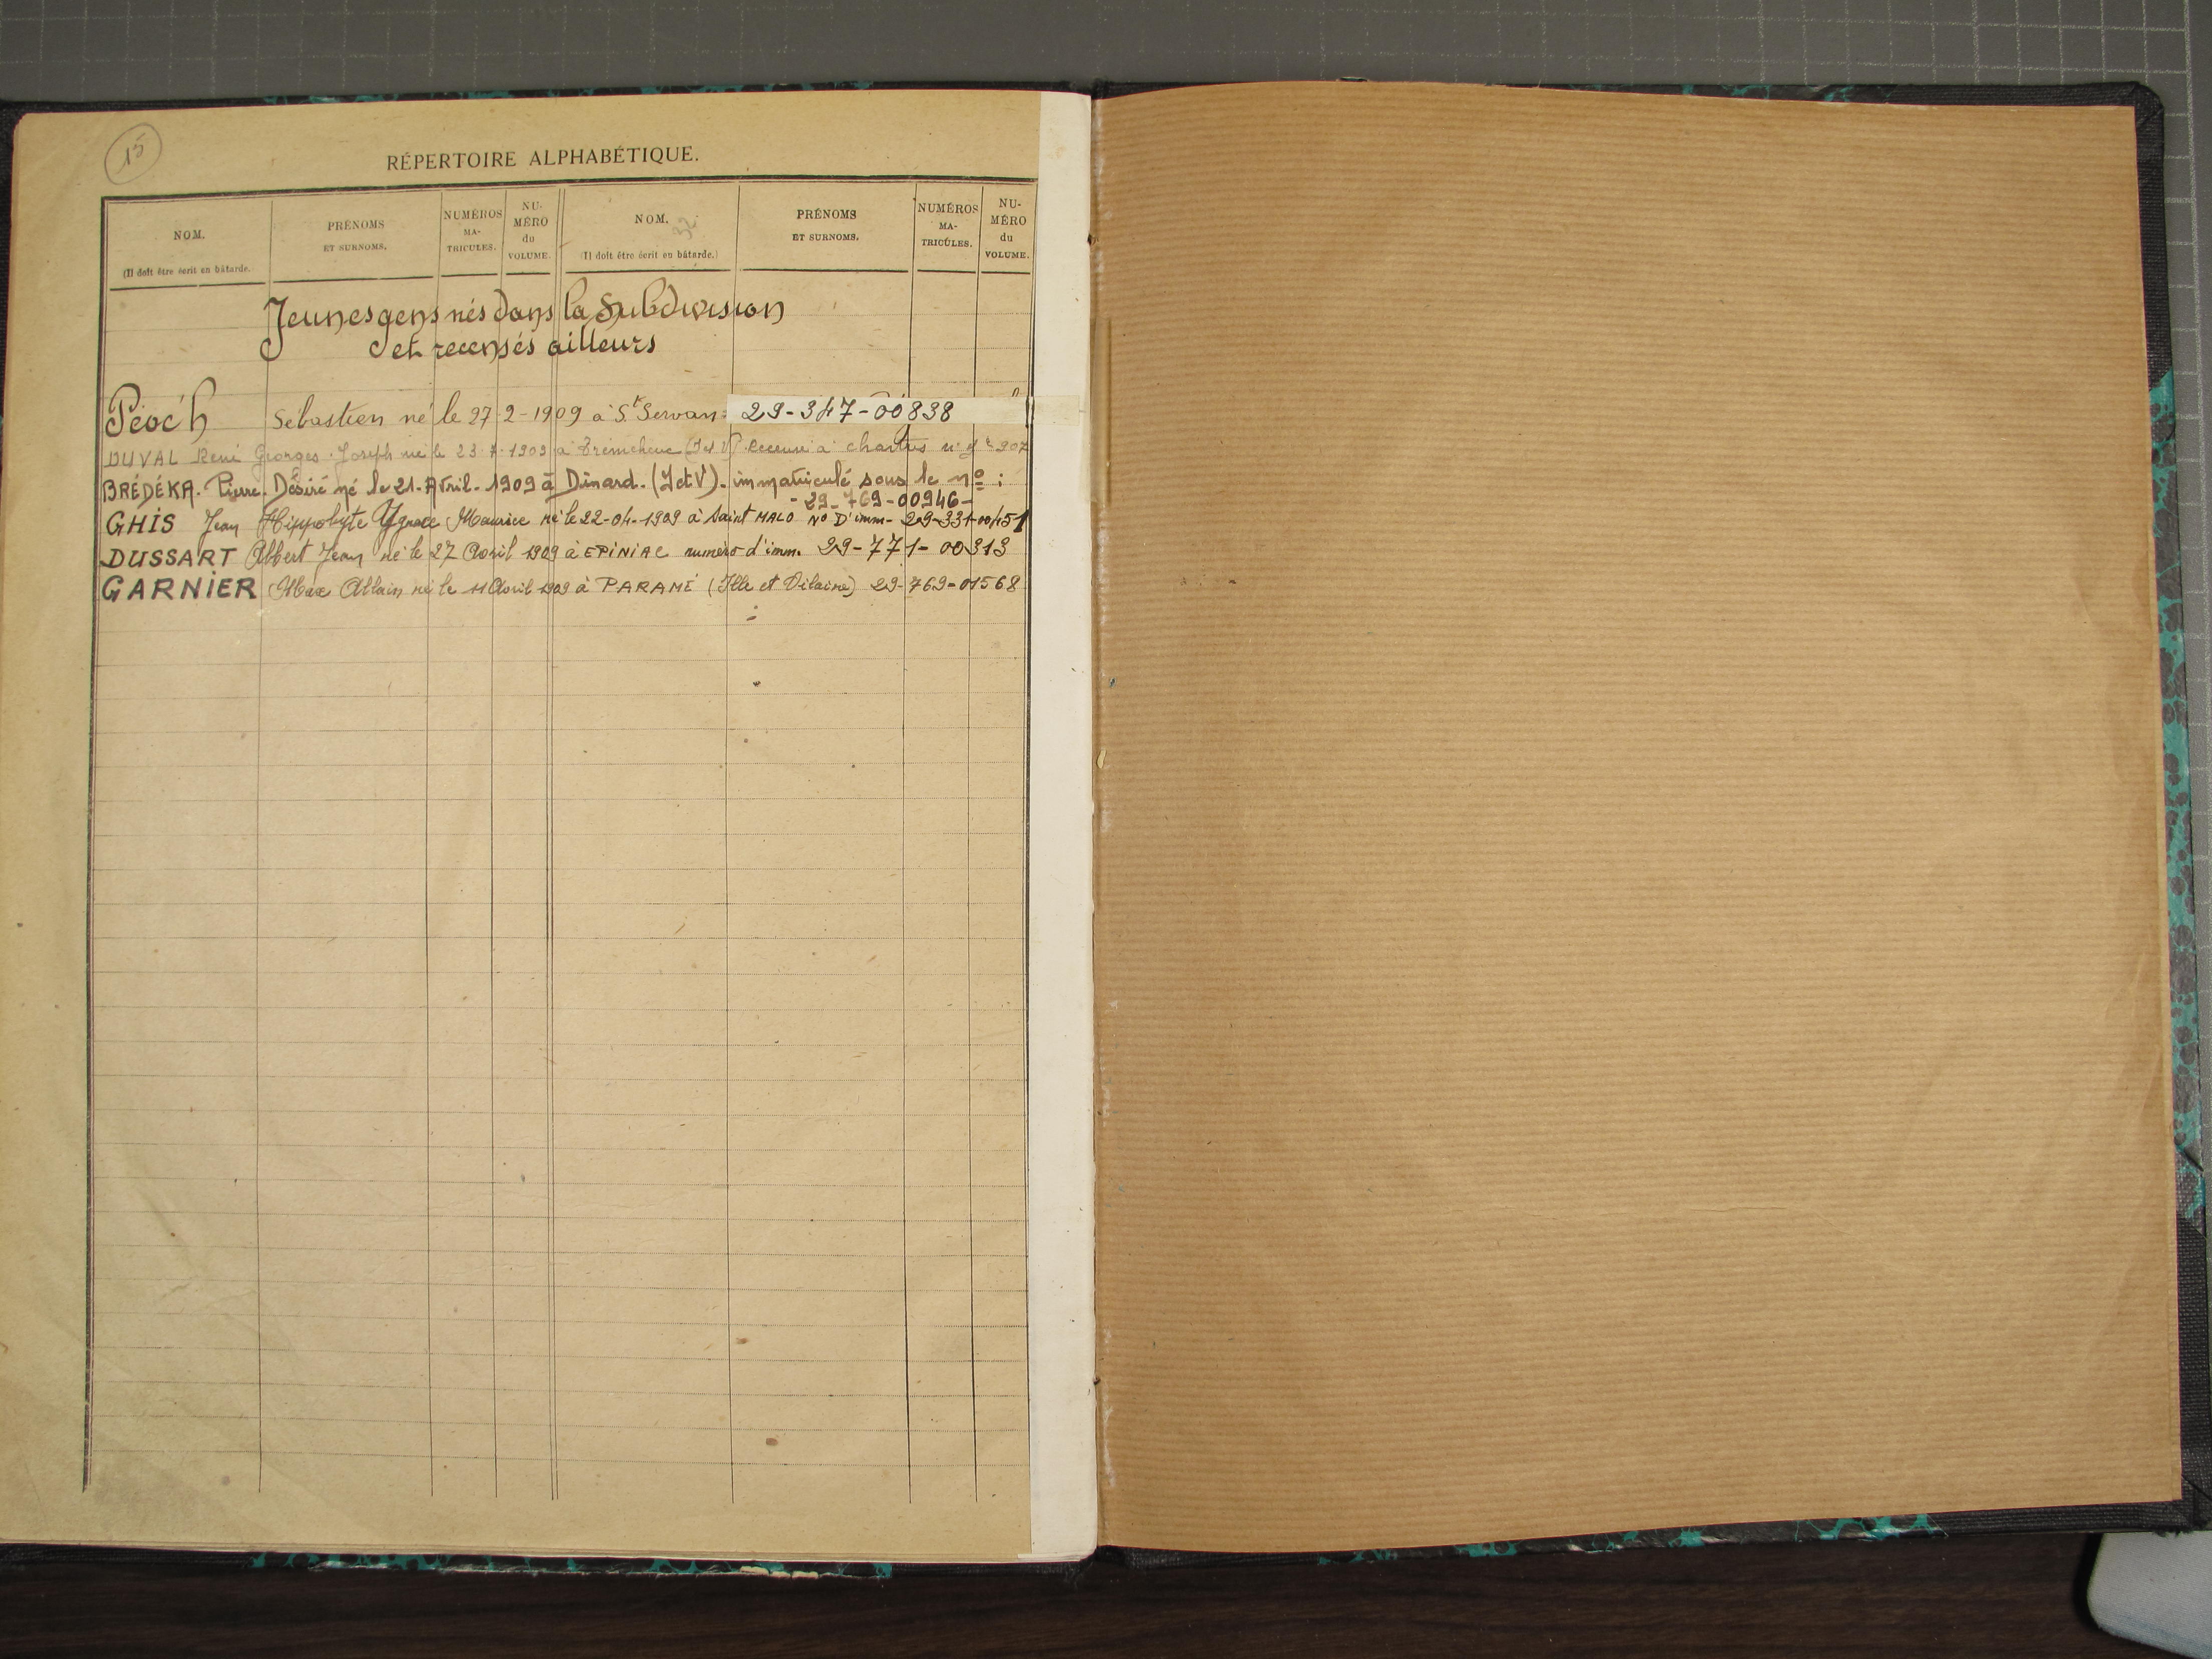 15
RÉPERTOIRE ALPHABÉTIQUE.
NOM.
(Il doit être écrit en bâtarde.
PRÉNOMS
ET SURNOMS.
NUMÉROS
MA-
TRICULES.
NU-
MÉRO
du
VOLUME.
NOM.
(Il doit être écrit en bâtarde.)
PRÉNOMS
ET SURNOMS.
NUMÉROS
MA-
TRICULES.
NU-
MÉRO
du
VOLUME.
Jeunes gens nés dans la Subdivision
et recensés ailleurs
Péoc'h Sébastien né le 27-2-1909 à St Servan: 29-347-00838
DUVAL René Georges Joseph né le 23.7.1909 à (I et V) Recensé à chartres 907
BRÉDÉKA. Pierre. Désiré né le 21-Avril-1909 à Dinard. (I et V). immatriculé sous le nº :
- 29-769-00946-
GHIS Jean Hippolyte Ygnace Maurice né le 22-04-1909 à Saint MALO Nº D'imm- 29-331-00451
DUSSART Albert Jean né le 27 Avril 1909 à EPINIAC numéro d'imm. 29-771-00313
GARNIER Max Allain né le 11 Avril 1909 à PARAMÉ (Ille et Vilaine) 29-769-01568